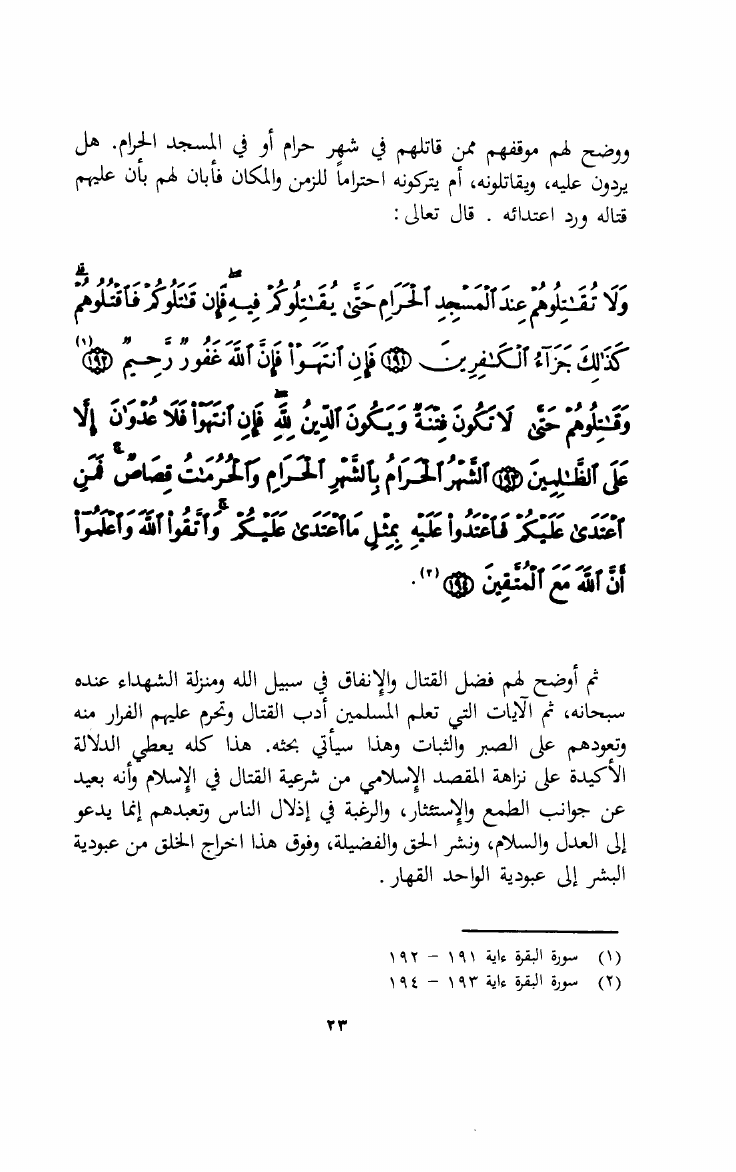 ووضح لهم موقفهم ممن قاتلهم في شهر حرام أو في المسجد الحرام. هل
يردون عليه، ويقاتلونه، أم يتركونه احتراماً للزمن والمكان فأبان لهم بأن عليهم
قتاله ورد اعتدائه . قال تعالى :
وَلَا تُقَـٰتِلُوهُمْ عِندَ ٱلْمَسْجِدِ ٱلْحَرَامِ حَتَّىٰ يُقَـٰتِلُوكُمْ فِيهِ ۖ فَإِن قَـٰتَلُوكُمْ فَٱقْتُلُوهُمْ ۗ
كَذَٰلِكَ جَزَآءُ ٱلْكَـٰفِرِينَ ﴿١٩١﴾ فَإِنِ ٱنتَهَوْا۟ فَإِنَّ ٱللَّهَ غَفُورٌ رَّحِيمٌ ﴿١٩٢﴾ (١)
وَقَـٰتِلُوهُمْ حَتَّىٰ لَا تَكُونَ فِتْنَةٌ وَيَكُونَ ٱلدِّينُ لِلَّهِ ۖ فَإِنِ ٱنتَهَوْا۟ فَلَا عُدْوَٰنَ إِلَّا
عَلَى ٱلظَّـٰلِمِينَ ﴿١٩٣﴾ ٱلشَّهْرُ ٱلْحَرَامُ بِٱلشَّهْرِ ٱلْحَرَامِ وَٱلْحُرُمَـٰتُ قِصَاصٌ ۚ فَمَنِ
ٱعْتَدَىٰ عَلَيْكُمْ فَٱعْتَدُوا۟ عَلَيْهِ بِمِثْلِ مَا ٱعْتَدَىٰ عَلَيْكُمْ ۚ وَٱتَّقُوا۟ ٱللَّهَ وَٱعْلَمُوٓا۟
أَنَّ ٱللَّهَ مَعَ ٱلْمُتَّقِينَ ﴿١٩٤﴾ (٢) .
ثم أوضح لهم فضل القتال والإنفاق في سبيل الله ومنزلة الشهداء عنده
سبحانه، ثم الآيات التي تعلم المسلمين أدب القتال وتحرم عليهم الفرار منه
وتعودهم على الصبر والثبات وهذا سيأتي بحثه. هذا كله يعطي الدلالة
الأكيدة على نزاهة المقصد الإسلامي من شرعية القتال في الإسلام وأنه بعيد
عن جوانب الطمع والإستئثار، والرغبة في إذلال الناس وتعبدهم إنما يدعو
إلى العدل والسلام، ونشر الحق والفضيلة، وفوق هذا اخراج الخلق من عبودية
البشر إلى عبودية الواحد القهار .
(١) سورة البقرة ءاية ١٩١ – ١٩٢
(٢) سورة البقرة ءاية ١٩٣ – ١٩٤
٢٣